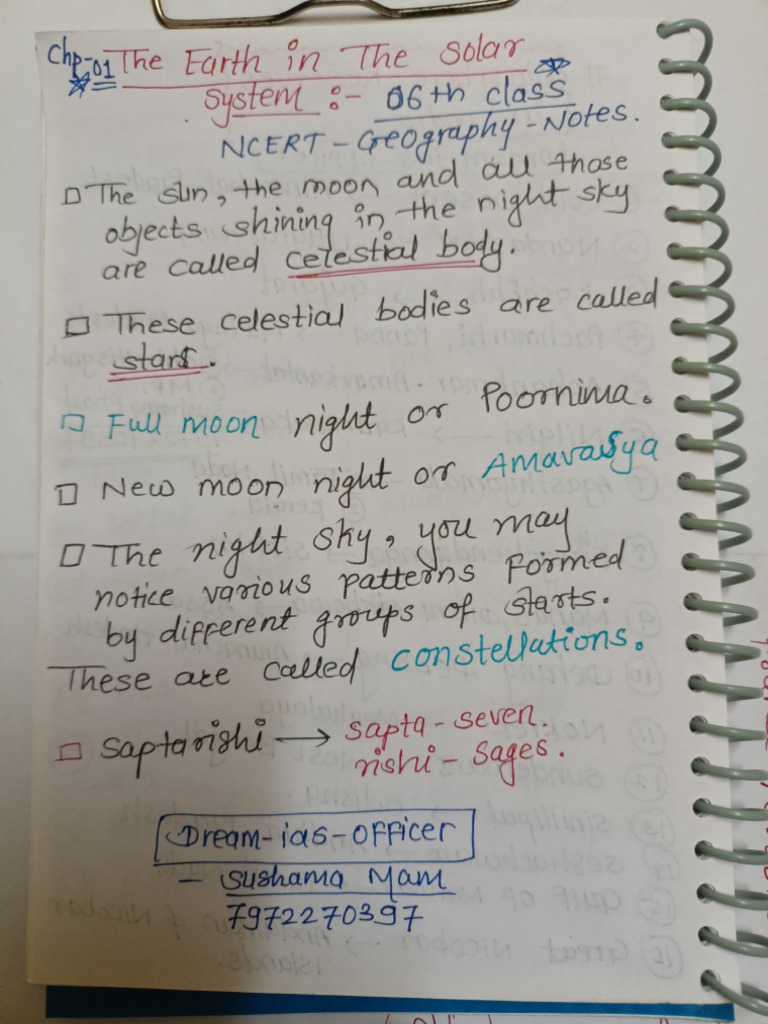 Chp-01 The Earth in The solar
System :- 06th class
NCERT - Geography - Notes.
The sun, the moon and all those
objects shining in the night sky
are called celestial body.
These celestial bodies are called
stars.
Full moon night or Poornima.
New moon night or Amavasya
The night sky, you may
notice various patterns formed
by different groups of starts.
These are called constellations.
Saptarishi → sapta - seven.
rishi - Sages.
Dream-ias-officer
- Sushama Mam
7972270397